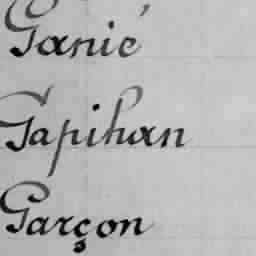 Ganié
Gapihan
Garçon